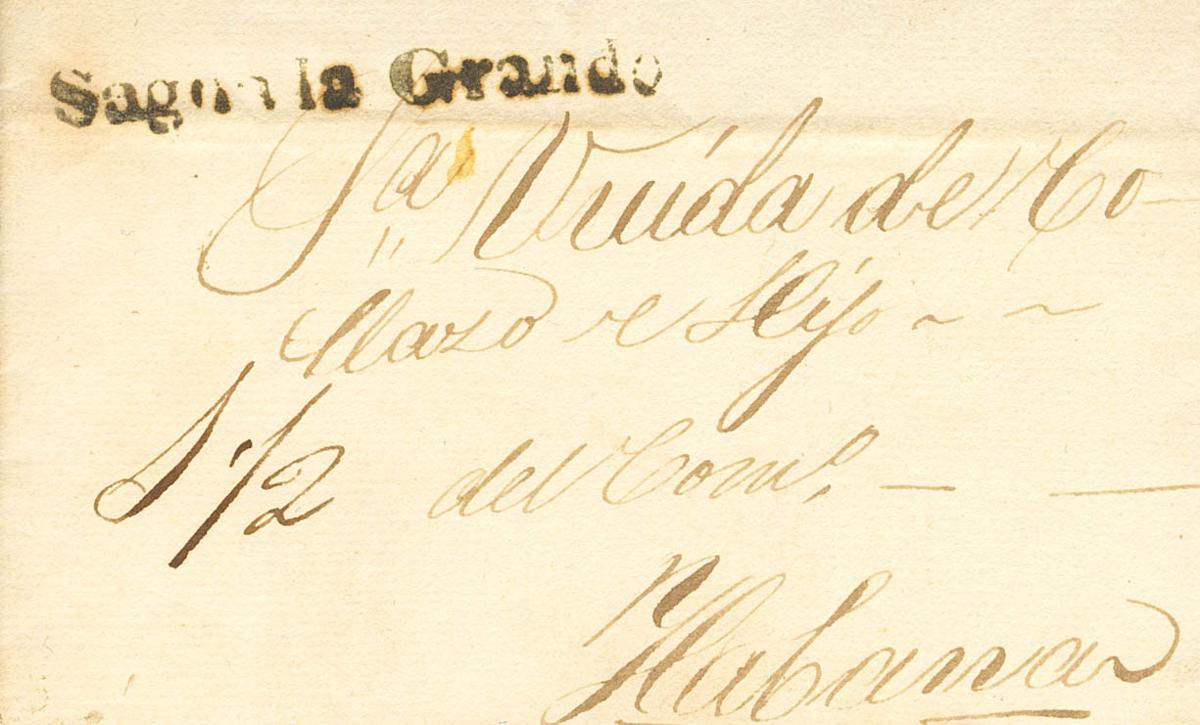 Sagua la Grande
Sra. Viuda de Co-
llazo e Hijo
1 1/2 del Como.
Habana